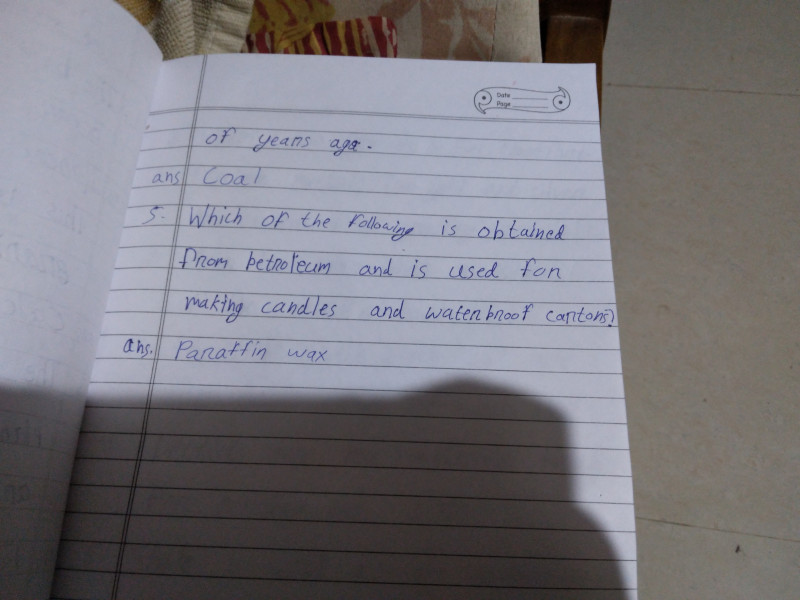 Date
Page
of years ago.
ans Coal
5. Which of the following is obtained
from petroleum and is used for
making candles and waterproof cartons?
ans. Paraffin wax